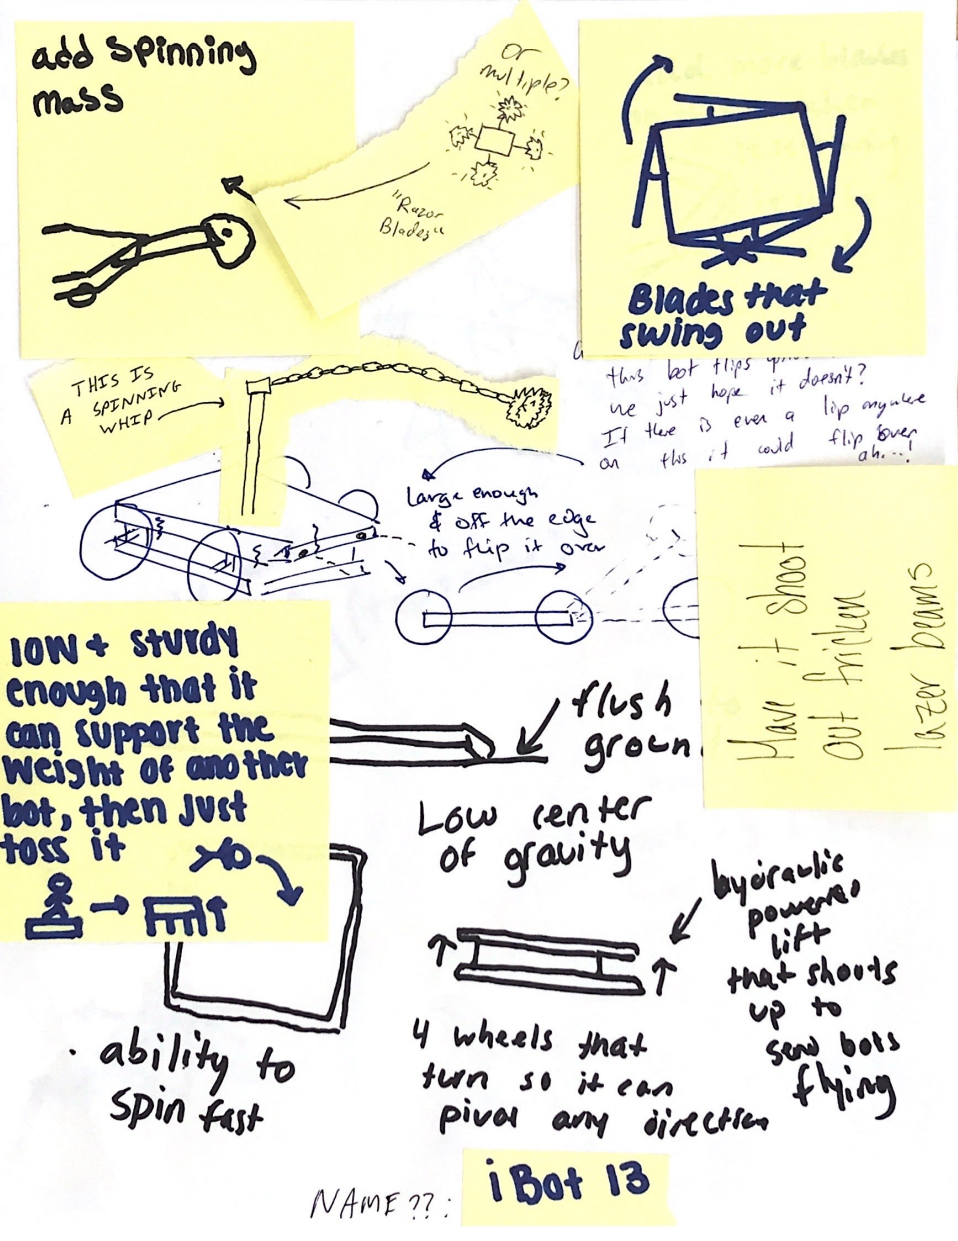 add spinning
mass
or
multiple?
"Razor
Blades"
Blades that
swing out
THIS IS
A SPINNING
WHIP
this bot flips
we just hope it doesn't?
If there is even a lip anywhere
on this it could flip over
ah...!
Large enough
& off the edge
to flip it over
Have it shoot
out fricken
lazer beams
low + sturdy
enough that it
can support the
weight of another
bot, then just
toss it
flush
groun
Low center
of gravity
hydraulic
powered
lift
that shoots
up to
send bots
flying
4 wheels that
turn so it can
pivot any direction
· ability to
spin fast
NAME??:
iBot 13